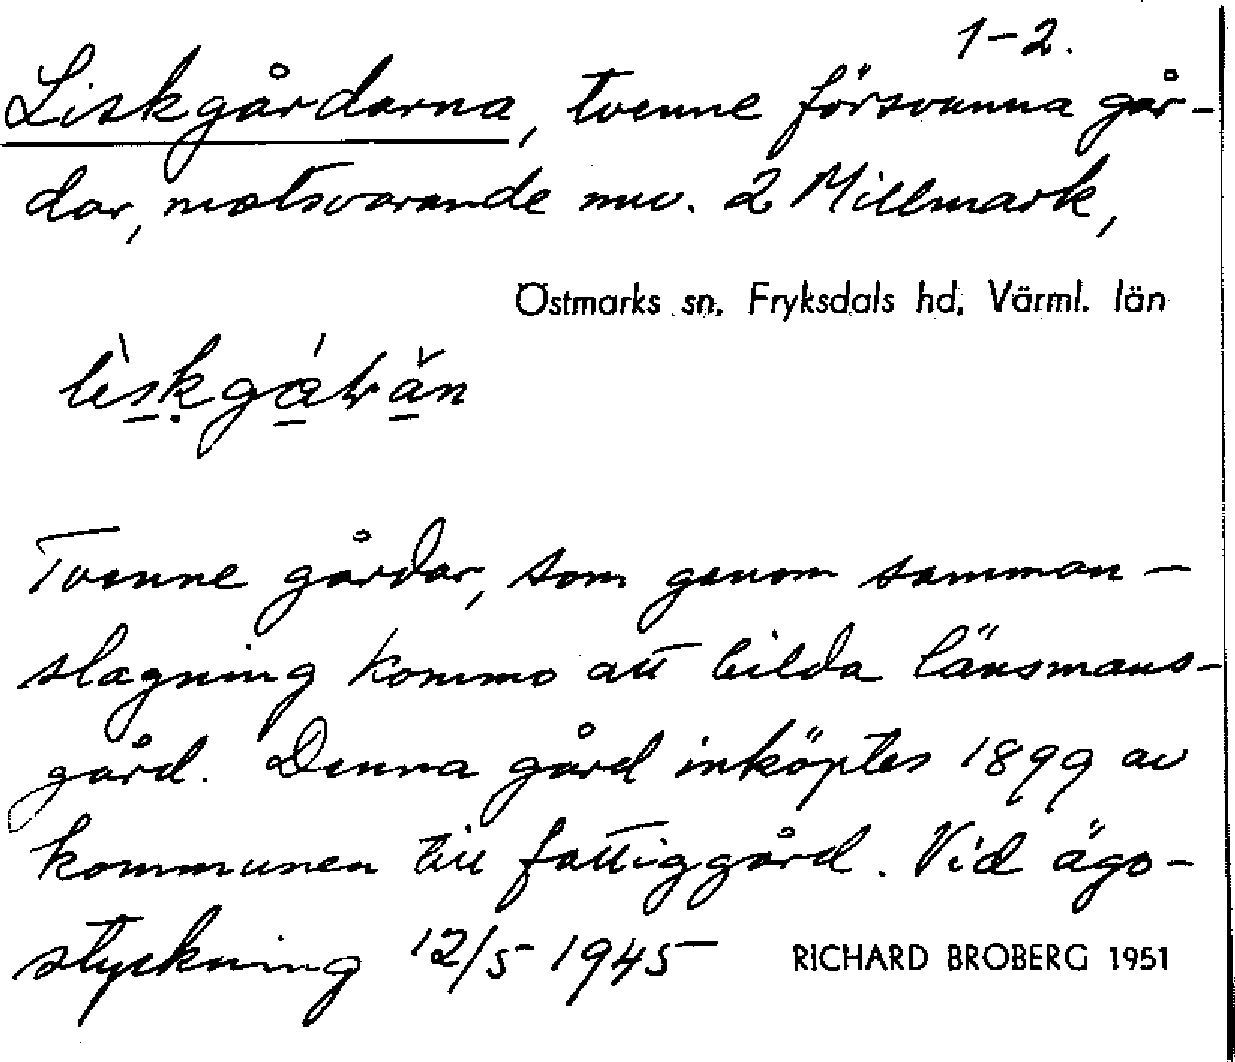 1-2.
Liskgårdarna, tvenne försvunna går-
dar, motsvarande nuv. 2 Millmark,
Östmarks sn, Fryksdals hd, Värml. län
Tvenne gårdar, som genom samman-
slagning kommo att bilda länsmans-
gård. Denna gård inköptes 1899 av
kommunen till fattiggård. Vid ägo-
styckning 12/5 1945
RICHARD BROBERG 1951